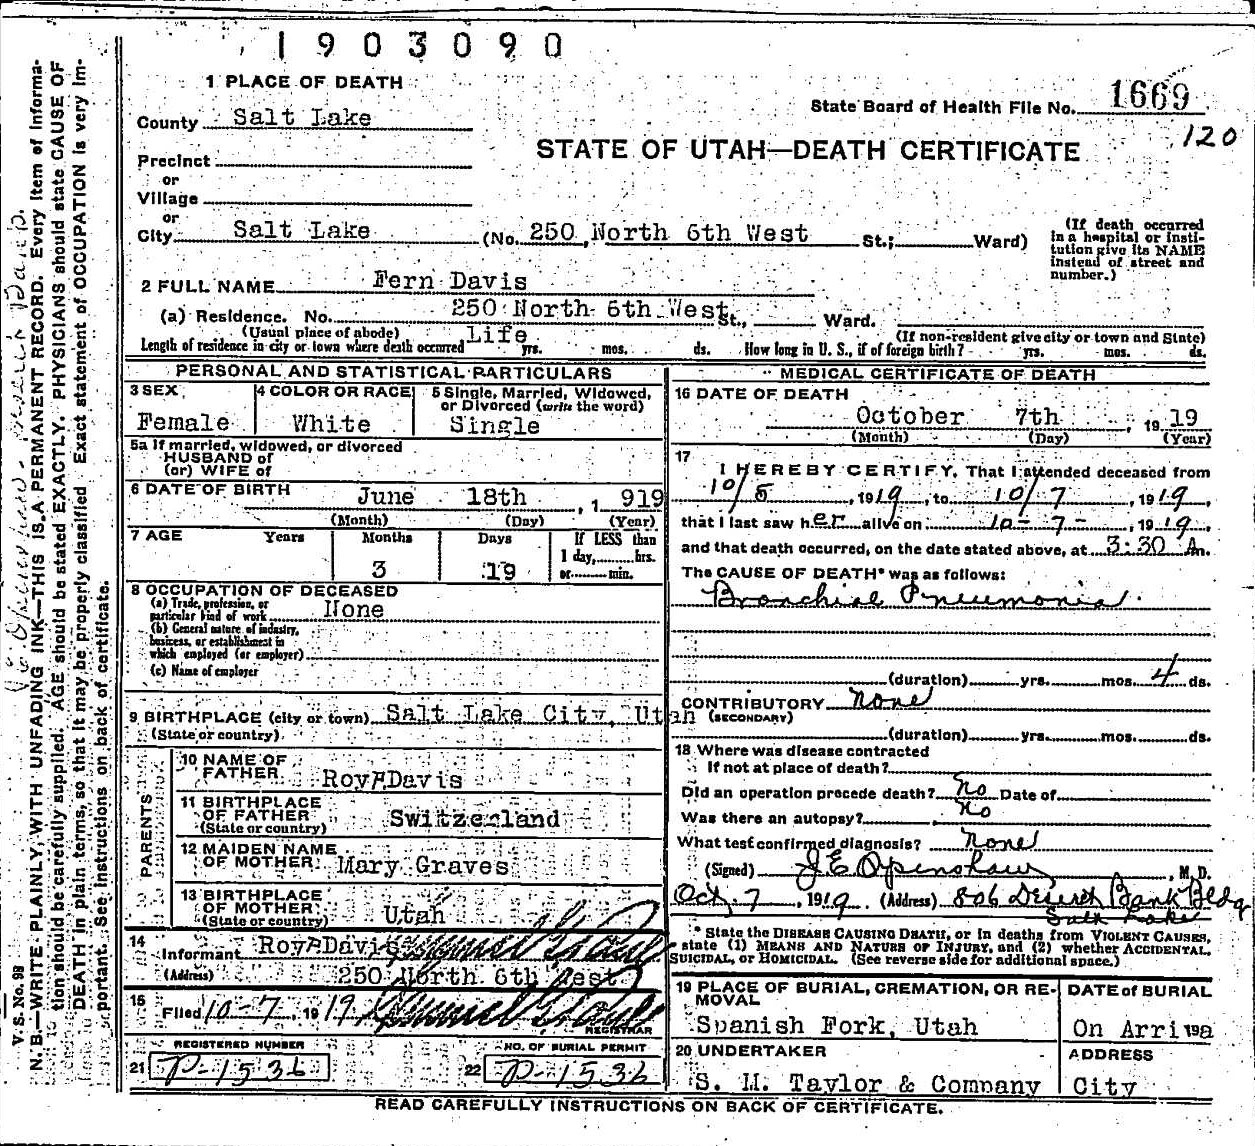 1903090
1 PLACE OF DEATH
State Board of Health File No. 1669
120
County Salt Lake
STATE OF UTAH—DEATH CERTIFICATE
Precinct
or
Village
or
City Salt Lake (No. 250 North 6th West St.; Ward)
(If death occurred
in a hospital or insti-
tution give its NAME
instead of street and
number.)
2 FULL NAME Fern Davis
(a) Residence. No. 250 North 6th West St., Ward.
(Usual place of abode) (If non-resident give city or town and State)
Length of residence in city or town where death occurred Life yrs. mos. ds. How long in U. S., if of foreign birth? yrs. mos. ds.
PERSONAL AND STATISTICAL PARTICULARS
3 SEX 4 COLOR OR RACE 5 Single, Married, Widowed,
or Divorced (write the word)
Female White Single
5a If married, widowed, or divorced
HUSBAND of
(or) WIFE of
6 DATE OF BIRTH June 18th, 1919
(Month) (Day) (Year)
7 AGE Years Months Days If LESS than
1 day, hrs.
or min.
3 19
8 OCCUPATION OF DECEASED
(a) Trade, profession, or
particular kind of work None
(b) General nature of industry,
business, or establishment in
which employed (or employer)
(c) Name of employer
9 BIRTHPLACE (city or town) Salt Lake City, Utah
(State or country)
PARENTS
10 NAME OF
FATHER Roy A Davis
11 BIRTHPLACE
OF FATHER Switzerland
(State or country)
12 MAIDEN NAME
OF MOTHER Mary Graves
13 BIRTHPLACE
OF MOTHER Utah
(State or country)
14
Informant Roy A Davis
(Address) 250 North 6th West
15
Filed 10-7, 1919
REGISTRAR
REGISTERED NUMBER NO. OF BURIAL PERMIT
21 P-1536 22 P-1536
MEDICAL CERTIFICATE OF DEATH
16 DATE OF DEATH
October 7th, 1919
(Month) (Day) (Year)
17
I HEREBY CERTIFY, That I attended deceased from
10/5, 1919, to 10/7, 1919,
that I last saw her alive on 10-7-, 1919,
and that death occurred, on the date stated above, at 3:30 Am.
The CAUSE OF DEATH* was as follows:
Bronchial Pneumonia.
(duration) yrs. mos. 4 ds.
CONTRIBUTORY None
(SECONDARY)
(duration) yrs. mos. ds.
18 Where was disease contracted
If not at place of death?
Did an operation precede death? No Date of
Was there an autopsy? No
What test confirmed diagnosis? None
(Signed) J.E. Openshaw, M.D.
Oct. 7, 1919 (Address) 806 Deseret Bank Bldg
Salt Lake
* State the DISEASE CAUSING DEATH, or in deaths from VIOLENT CAUSES,
state (1) MEANS AND NATURE OF INJURY, and (2) whether ACCIDENTAL,
SUICIDAL, or HOMICIDAL. (See reverse side for additional space.)
19 PLACE OF BURIAL, CREMATION, OR RE-
MOVAL
DATE of BURIAL
Spanish Fork, Utah On Arriva 19
20 UNDERTAKER ADDRESS
S. M. Taylor & Company City
READ CAREFULLY INSTRUCTIONS ON BACK OF CERTIFICATE.
V S. No. 98
N. B.—WRITE PLAINLY, WITH UNFADING INK—THIS IS A PERMANENT RECORD. Every item of informa-
tion should be carefully supplied. AGE should be stated EXACTLY. PHYSICIANS should state CAUSE OF
DEATH in plain terms, so that it may be properly classified. Exact statement of OCCUPATION is very im-
portant. See instructions on back of certificate.